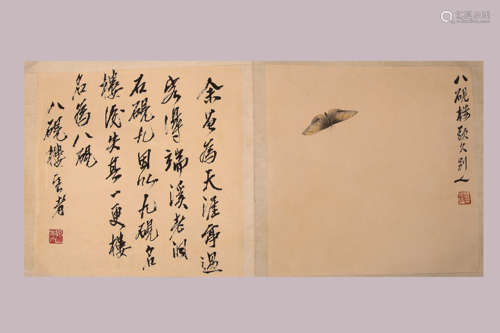 八硯樓頭久別人
余曾為天涯亭過
客得端溪老洞
石硯九因以九硯名
樓後失其一更樓
名為八硯
八硯樓主者